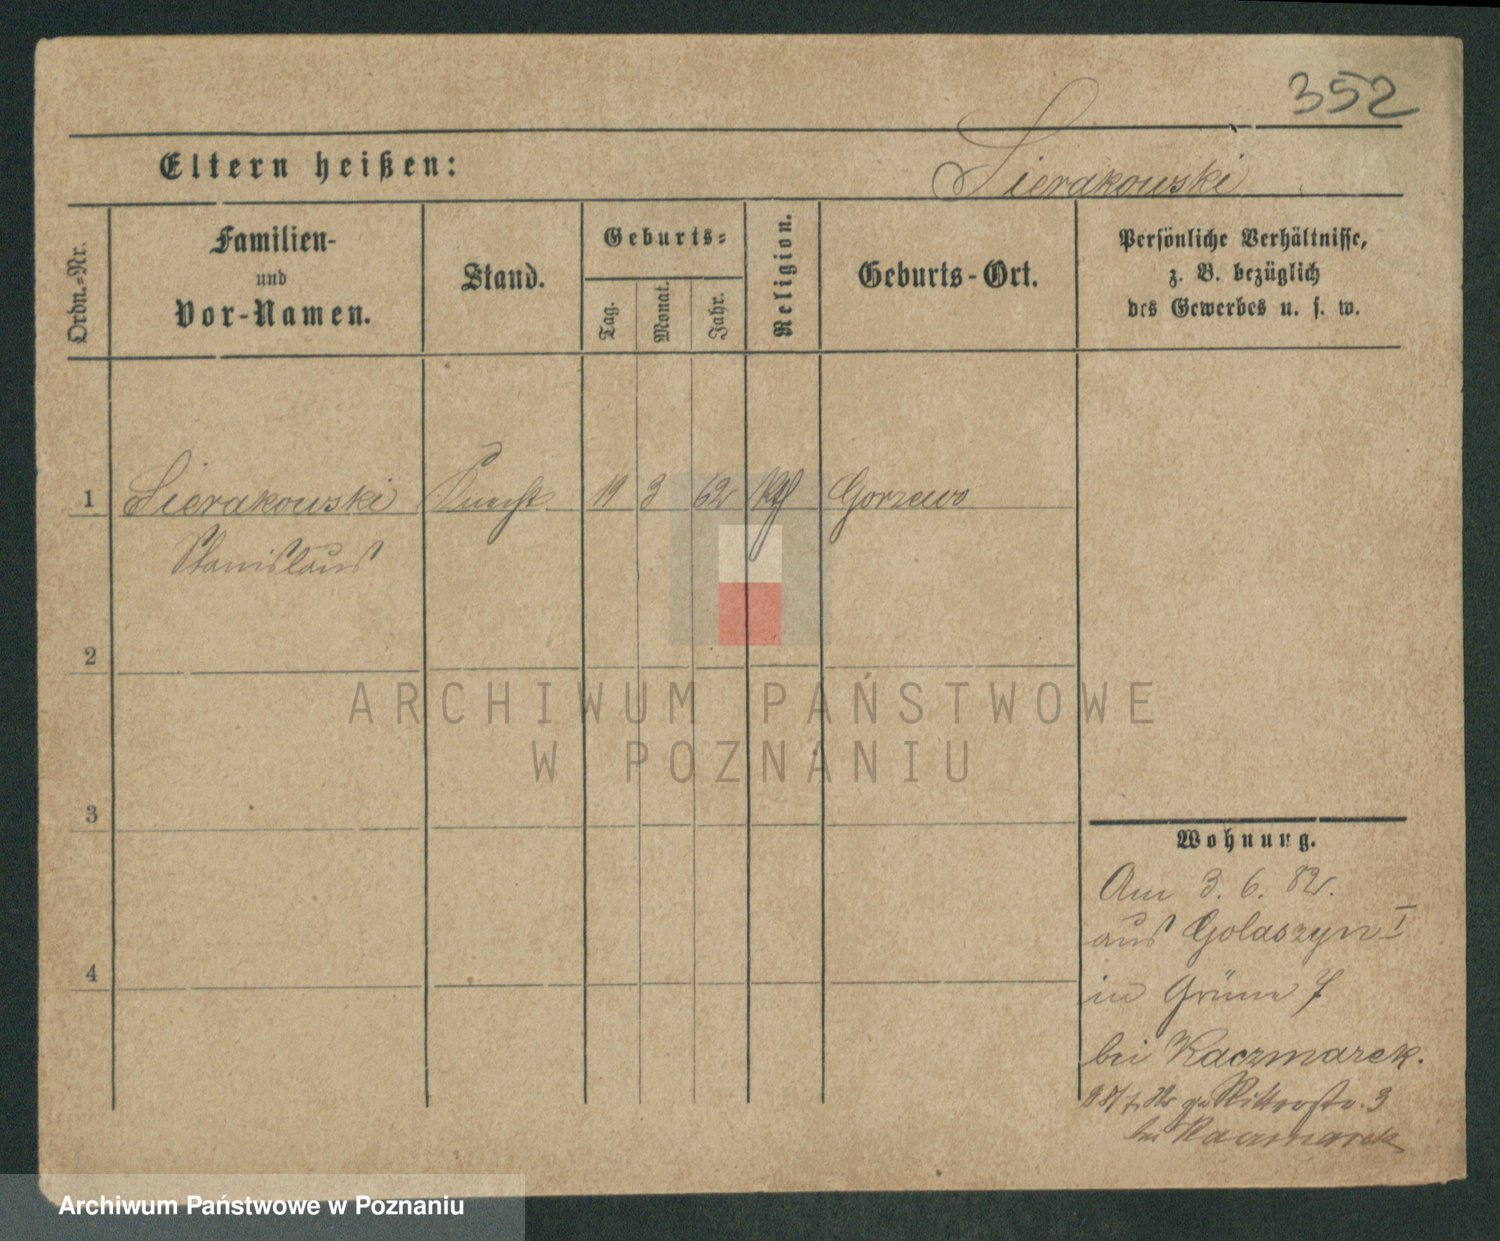 352
Eltern heißen: Sierakowski
Ordn.-Nr.
Familien-
und
Vor-Namen.
Stand.
Geburts-
Tag.
Monat.
Jahr.
Religion.
Geburts-Ort.
Persönliche Verhältnisse,
z. B. bezüglich
des Gewerbes u. s. w.
1 Sierakowski Knecht 19 3 62 kath Gorzewo
Stanislaus
2
3
4
Wohnung.
Am 3. 6. 82.
aus Golaszyn I
in Grüne 7
bei Kaczmarek.
82 zu Ritterstr. 3
bei Kaczmarek
ARCHIWUM PAŃSTWOWE
W POZNANIU
Archiwum Państwowe w Poznaniu